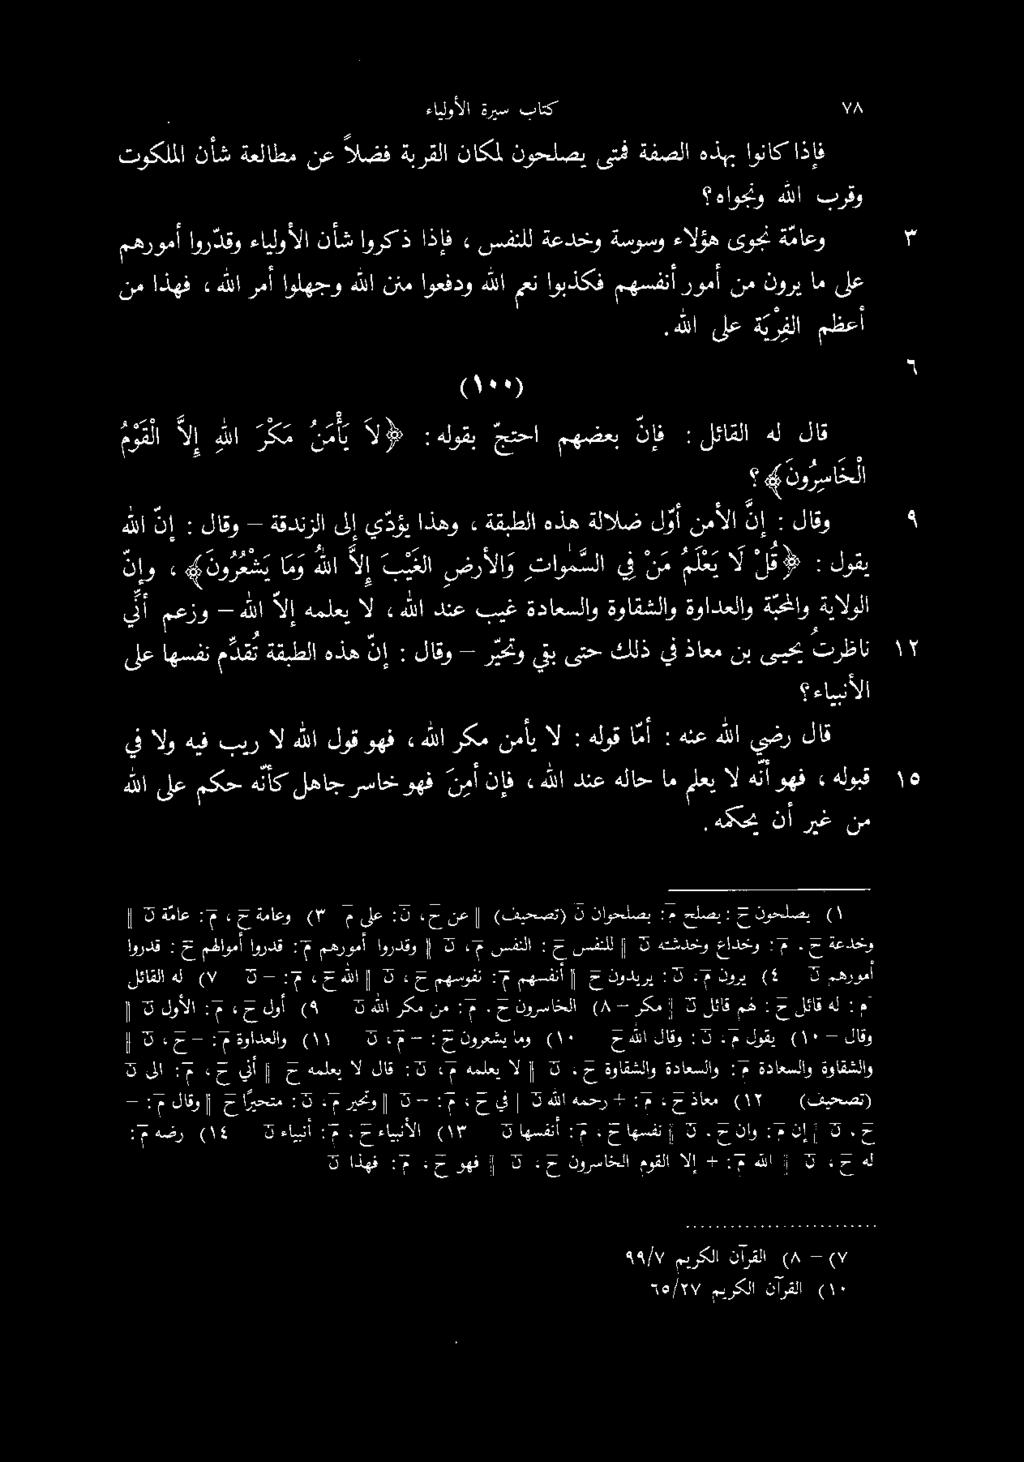 ٧٨ كتاب سيرة الأولياء
فإذا كانوا بهذه الصفة فمتى يصلحون لمكان القربة فضلاً عن مطالعة شأن الملكوت
وقرب الله ونجواه؟
٣ وعامّة نجوى هؤلاء وسوسة وخدعة للنفس ، فإذا ذكروا شأن الأولياء وقدّروا أمورهم
على ما يرون من أمور أنفسهم فكذبوا نعم الله ودفعوا منن الله وجهلوا أمر الله ، فهذا من
أعظم الفِرْيَة على الله .
٦
(١٠٠)
قال له القائل : فإنّ بعضهم احتجّ بقوله : ﴿لاَ يَأْمَنُ مَكْرَ اللهِ إِلاَّ الْقَوْمُ
الْخَاسِرُونَ﴾ ؟
٩ وقال : إنَّ الأمن أوّل ضلالة هذه الطبقة ، وهذا يؤدّي إلى الزندقة – وقال : إنّ الله
يقول : ﴿قُلْ لَا يَعْلَمُ مَنْ فِي السَّمٰوَاتِ وَالأَرضِ الغَيْبَ إِلاَّ اللهُ وَمَا يَشْعُرُونَ﴾ ، وإنّ
الولاية والمحبّة والعداوة والشقاوة والسعادة غيب عند الله ، لا يعلمه إلاّ الله – وزعم أنِّي
١٢ ناظرتُ يحيى بن معاذ في ذلك حتى بقي وتحيّر – وقال : إنّ هذه الطبقة تُقدِّم نفسها على
الأنبياء؟
قال رضي الله عنه : أمّا قوله : لا يأمن مكر الله ، فهو قول الله لا ريب فيه ولا في
١٥ قبوله ، فهو أنّه لا يعلم ما حاله عند الله ، فإن أمِنَ فهو خاسر جاهل كأنّه حكم على الله
من غير أن يحكمه .
١) يصلحون خ : يصلح م : بصلحوان ن (تصحيف) ‖ عن خ ، ن : على م ٣) وعامة خ ، م : عامّة ن ‖
وخدعة خ ، م : وخداع وخدشته ن ‖ للنفس خ : النفس م ، ن ‖ وقدروا أمورهم م : قدروا أموالهم خ : قدروا
أمورهم ن ٤) يرون م ، ن : يريدون خ ‖ أنفسهم م : نفوسهم خ ، ن ‖ الله خ ، م : – ن ٧) له القائل
م : له قائل خ : هم قائل ن ‖ مكر – ٨) الخاسرون خ ، م : من مكر الله ن ٩) أول خ ، م : الأول ن ‖
وقال – ١٠) يقول م ، ن : وقال الله خ ١٠) وما يشعرون خ : – م ، ن ١١) والعداوة م : – خ ، ن ‖
والشقاوة والسعادة م : والسعادة والشقاوة خ ، ن ‖ لا يعلمه م ، ن : قال لا يعلمه خ ‖ أني خ ، م : الى ن
(تصحيف) ١٢) معاذ خ ، م : + رحمه الله ن ‖ في خ ، م : – ن ‖ وتحير م ، ن : متحيرًا خ ‖ وقال م : –
خ ، ن ‖ إن م : وان خ ، ن ‖ نفسها خ ، م : أنفسها ن ١٣) الأنبياء خ ، م : أنبياء ن ١٤) رضه م :
له خ ، ن ‖ الله م : + إلا القوم الخاسرون خ ، ن ‖ فهو خ ، م : فهذا ن
٧) – ٨) القرآن الكريم ٩٩/٧
١٠) القرآن الكريم ٦٥/٢٧